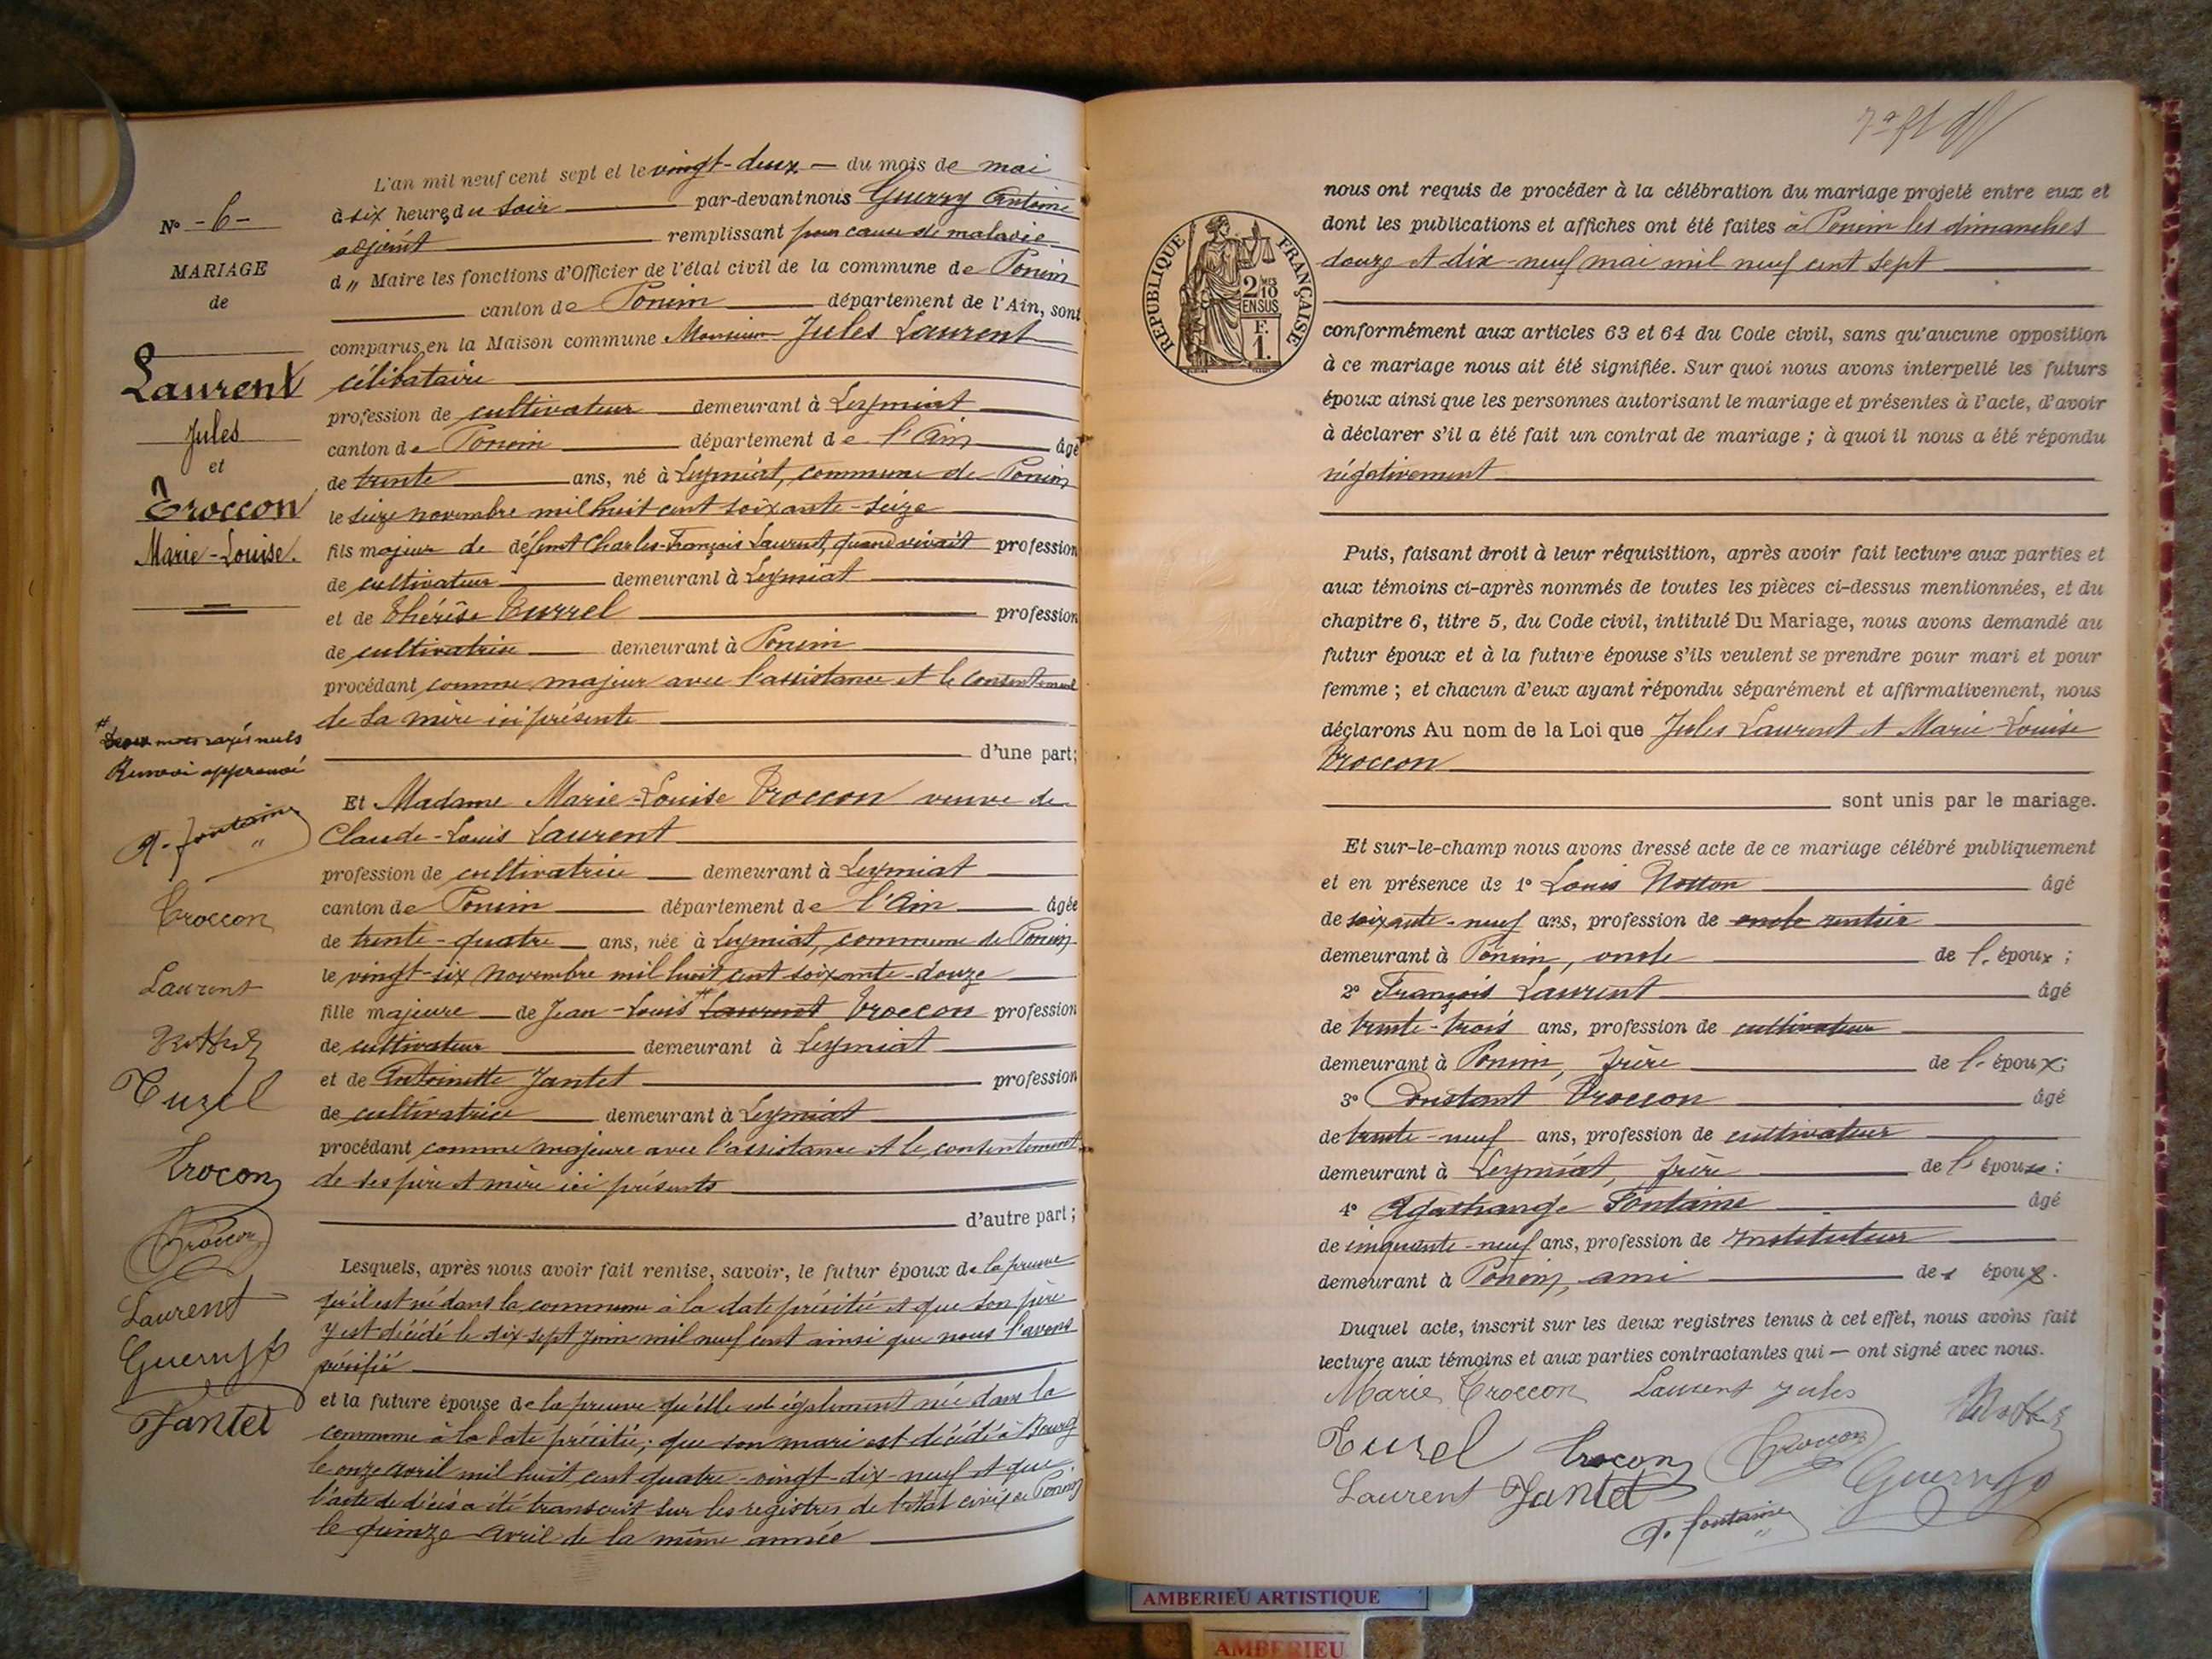 L'an mil neuf cent sept et le vingt-deux — du mois de mai
à six heures du soir — par-devant nous Guerry Antoine
adjoint — remplissant pour cause de maladie
d „ Maire les fonctions d'Officier de l'état civil de la commune de Poncin
canton de Poncin — département de l'Ain, sont
comparus en la Maison commune Monsieur Jules Laurent
célibataire
profession de cultivateur demeurant à Leymiat
canton de Poncin département de l'Ain âgé
de trente ans, né à Leymiat, commune de Poncin
le seize novembre mil huit cent soixante-seize
fils majeur de défunt Charles-François Laurent, quand vivait profession
de cultivateur demeurant à Leymiat
et de Thérèse Turrel profession
de cultivatrice demeurant à Poncin
procédant comme majeur avec l'assistance et le consentement
de sa mère ici présente
d'une part;
Et Madame Marie-Louise Troccon veuve de
Claude-Louis Laurent
profession de cultivatrice demeurant à Leymiat
canton de Poncin département de l'Ain âgée
de trente-quatre ans, née à Leymiat, commune de Poncin
le vingt-six novembre mil huit cent soixante-douze
fille majeure de Jean-Louis # Laurent Troccon profession
de cultivateur demeurant à Leymiat
et de Antoinette Jantet profession
de cultivatrice demeurant à Leymiat
procédant comme majeure avec l'assistance et le consentement
de ses père et mère ici présents
d'autre part;
Lesquels, après nous avoir fait remise, savoir, le futur époux de la preuve
qu'il est né dans la commune à la date précitée et que son père
y est décédé le dix-sept juin mil neuf cent ainsi que nous l'avons
vérifié
et la future épouse de la preuve qu'elle est également née dans la
commune à la date précitée; que son mari est décédé à Bourg
le onze avril mil huit cent quatre-vingt-dix-neuf et que
l'acte de décès a été transcrit sur les registres de l'état civil de Poncin
le quinze avril de la même année
N° -6-
MARIAGE
de
Laurent
Jules
et
Troccon
Marie-Louise.
# mots rayés nuls
Renvoi approuvé
A. Fontaine
Troccon
Laurent
Turel
Trocon
Troccon
Laurent
Guerry
Jantet
RÉPUBLIQUE FRANÇAISE
2/10
EN SUS
F.
1.
nous ont requis de procéder à la célébration du mariage projeté entre eux et
dont les publications et affiches ont été faites à Poncin les dimanches
douze et dix-neuf mai mil neuf cent sept
conformément aux articles 63 et 64 du Code civil, sans qu'aucune opposition
à ce mariage nous ait été signifiée. Sur quoi nous avons interpellé les futurs
époux ainsi que les personnes autorisant le mariage et présentes à l'acte, d'avoir
à déclarer s'il a été fait un contrat de mariage ; à quoi il nous a été répondu
négativement
Puis, faisant droit à leur réquisition, après avoir fait lecture aux parties et
aux témoins ci-après nommés de toutes les pièces ci-dessus mentionnées, et du
chapitre 6, titre 5, du Code civil, intitulé Du Mariage, nous avons demandé au
futur époux et à la future épouse s'ils veulent se prendre pour mari et pour
femme ; et chacun d'eux ayant répondu séparément et affirmativement, nous
déclarons Au nom de la Loi que Jules Laurent et Marie-Louise
Troccon
sont unis par le mariage.
Et sur-le-champ nous avons dressé acte de ce mariage célébré publiquement
et en présence de 1° Louis âgé
de soixante-neuf ans, profession de oncle rentier
demeurant à Poncin, oncle de l'époux ;
2° François Laurent âgé
de trente-trois ans, profession de cultivateur
demeurant à Poncin, frère de l'époux ;
3° Constant Troccon âgé
de trente-neuf ans, profession de cultivateur
demeurant à Leymiat, frère de l'épouse ;
4° Agathange Fontaine âgé
de cinquante-neuf ans, profession de Instituteur
demeurant à Poncin, ami des époux.
Duquel acte, inscrit sur les deux registres tenus à cet effet, nous avons fait
lecture aux témoins et aux parties contractantes qui — ont signé avec nous.
Marie Troccon Laurent Jules
Turel Trocon Troccon
Laurent Jantet Guerry
A. Fontaine
AMBERIEU ARTISTIQUE
AMBERIEU